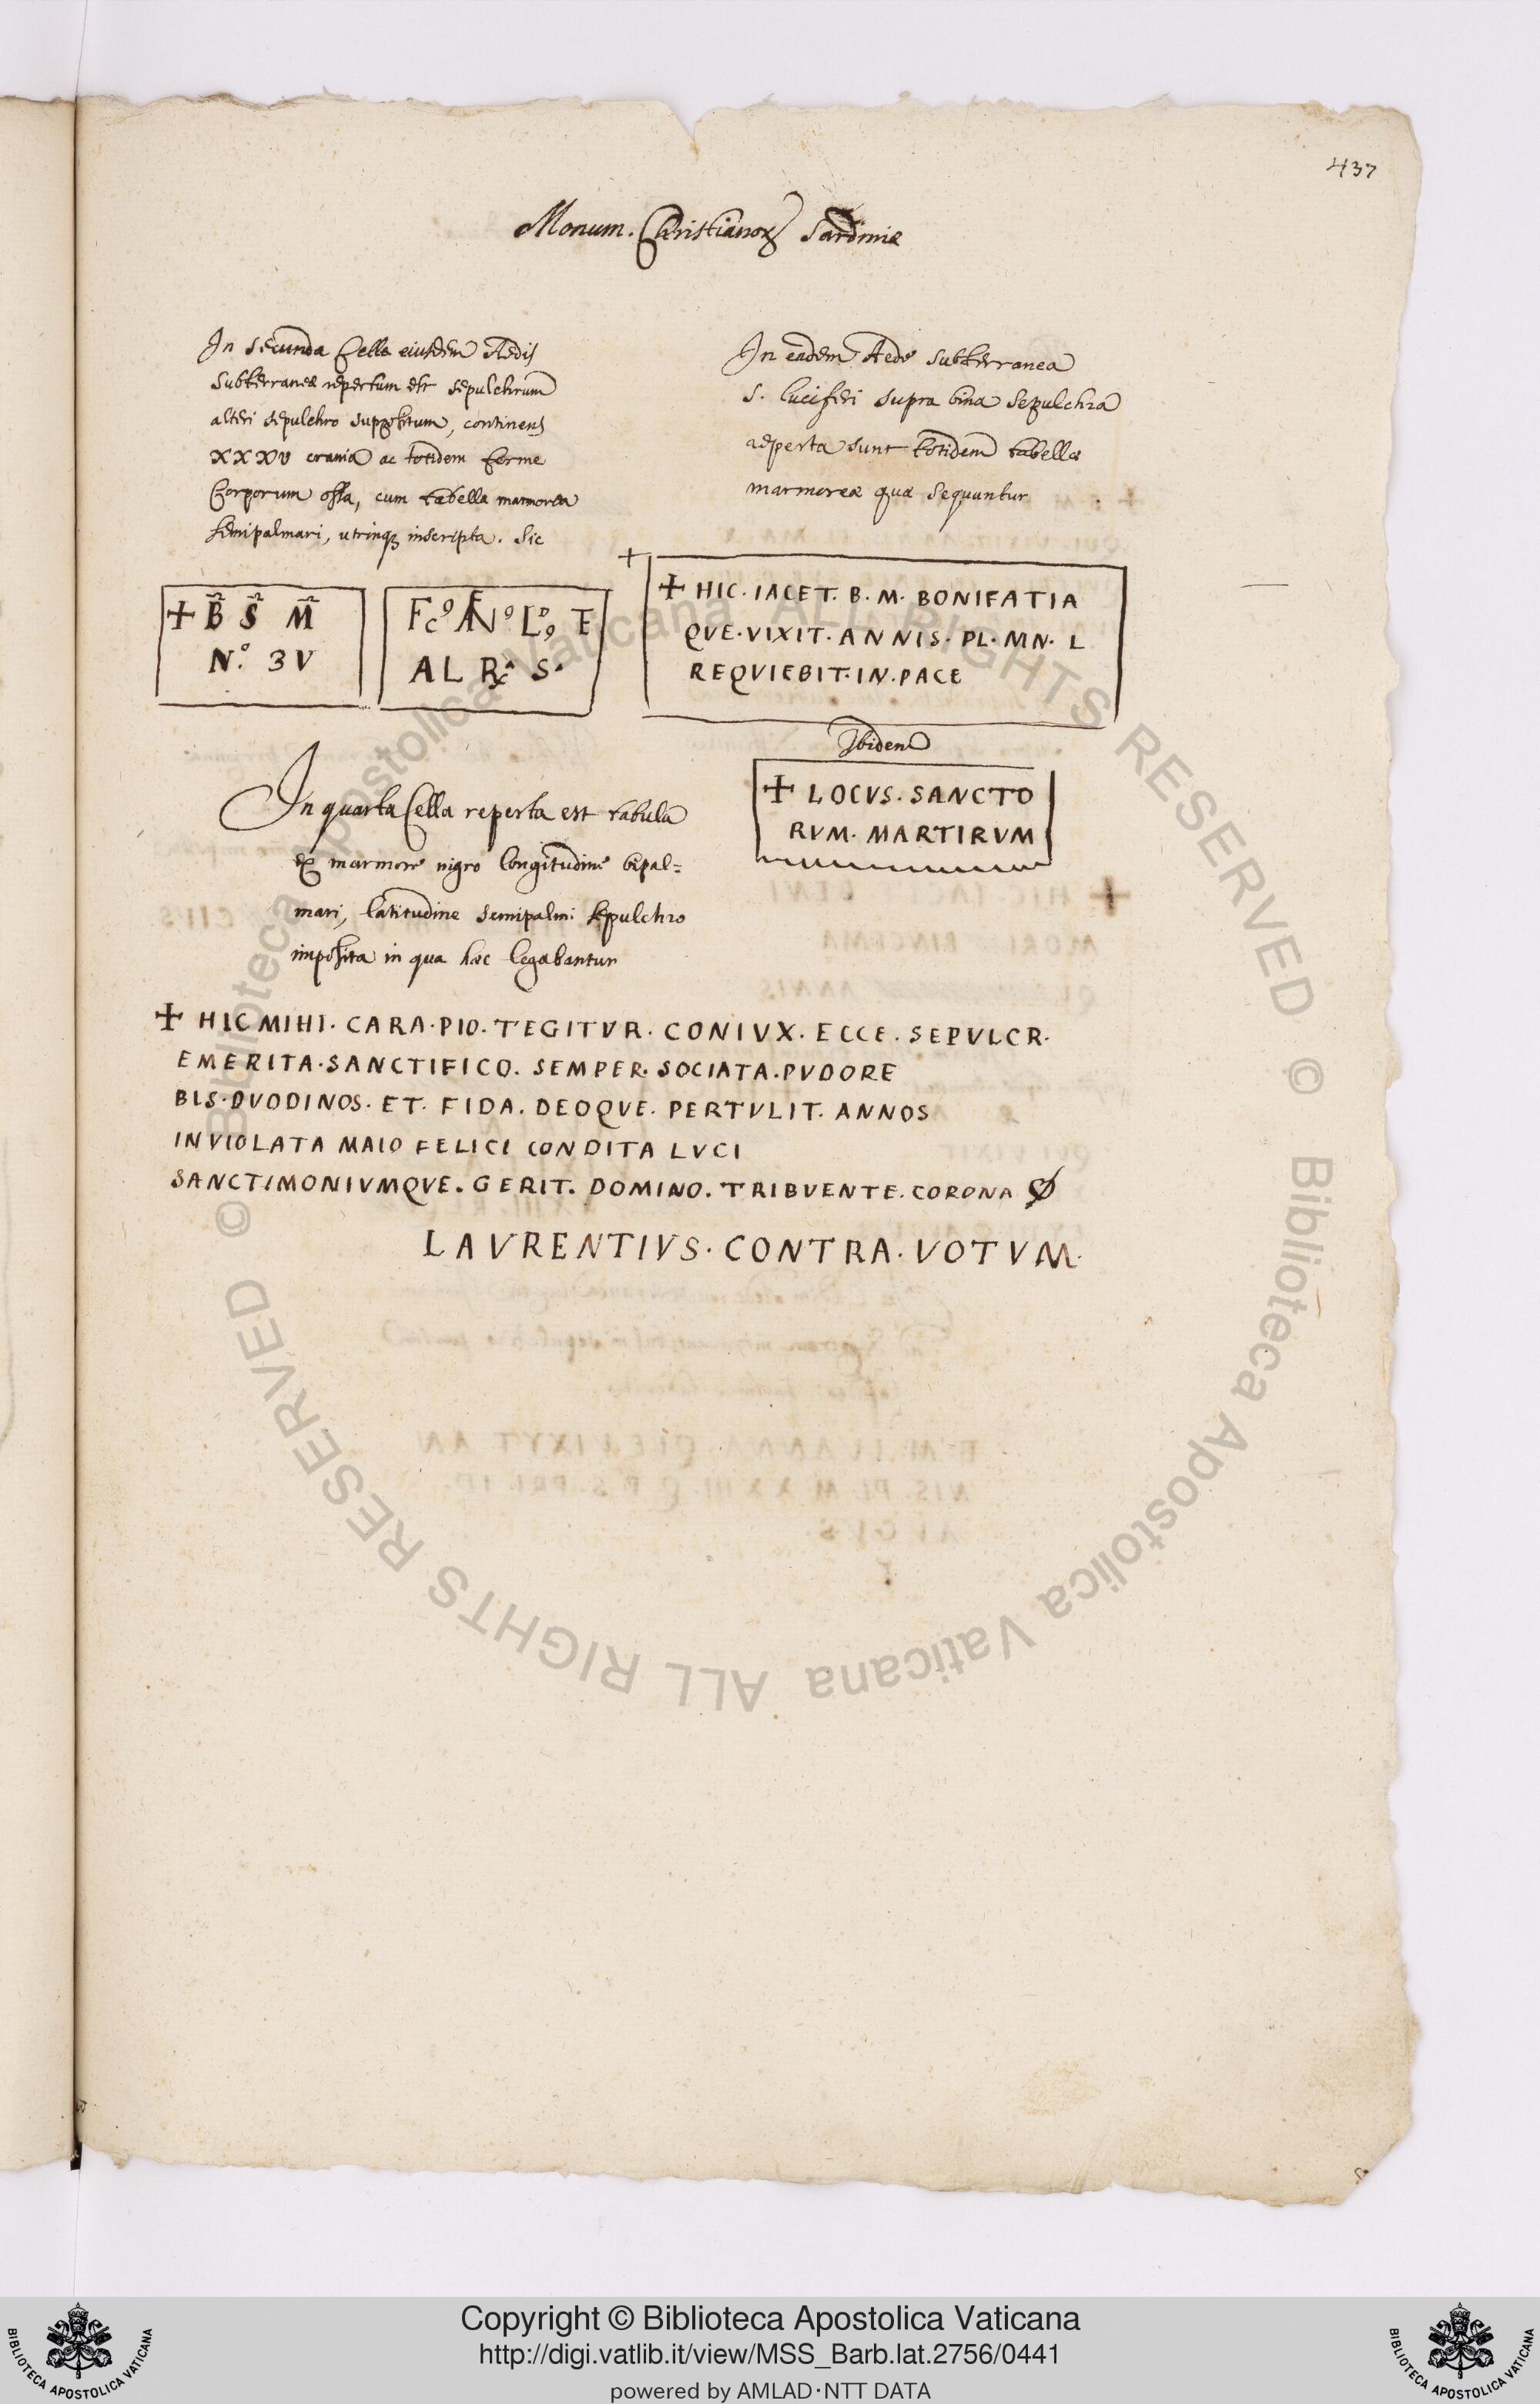 437
Monum. Christianoꝝ Sardiniæ
In secunda Cella eiusdem Aedis
subterraneæ repertum est sepulchrum
alteri sepulchro suppositum, continens
XXXV crania ac totidem ferme
Corporum ossa, cum tabella marmorea
semipalmari, utrinqꝫ inscripta. Sic
✝ B̅ S̅ M̅
N.º 3V
AL S.
In eadem Aede subterranea
S. Luciferi supra bina sepulchra
reperta sunt totidem tabellæ
marmoreæ quæ sequuntur
✝ HIC. IACET. B. M. BONIFATIA
QVE. VIXIT. ANNIS. PL. MN. L
REQVIEBIT. IN. PACE
Ibidem
✝ LOCVS. SANCTO
RVM. MARTIRVM
In quarta Cella reperta est tabula
ex marmore nigro longitudine bipal=
mari, latitudine semipalmi sepulchro
imposita in qua hæc legebantur
✝ HIC MIHI. CARA. PIO. TEGITVR. CONIVX. ECCE. SEPVLCR.
EMERITA. SANCTIFICO. SEMPER. SOCIATA. PVDORE
BIS. DVODINOS. ET. FIDA. DEOQVE. PERTVLIT. ANNOS
INVIOLATA MAIO FELICI CONDITA LVCI
SANCTIMONIVMQVE. GERIT. DOMINO. TRIBVENTE. CORONA
LAVRENTIVS. CONTRA. VOTVM.
© Biblioteca Apostolica Vaticana ALL RIGHTS RESERVED © Biblioteca Apostolica Vaticana ALL RIGHTS RESERVED
BIBLIOTECA APOSTOLICA VATICANA
Copyright © Biblioteca Apostolica Vaticana
http://digi.vatlib.it/view/MSS_Barb.lat.2756/0441
powered by AMLAD·NTT DATA
BIBLIOTECA APOSTOLICA VATICANA